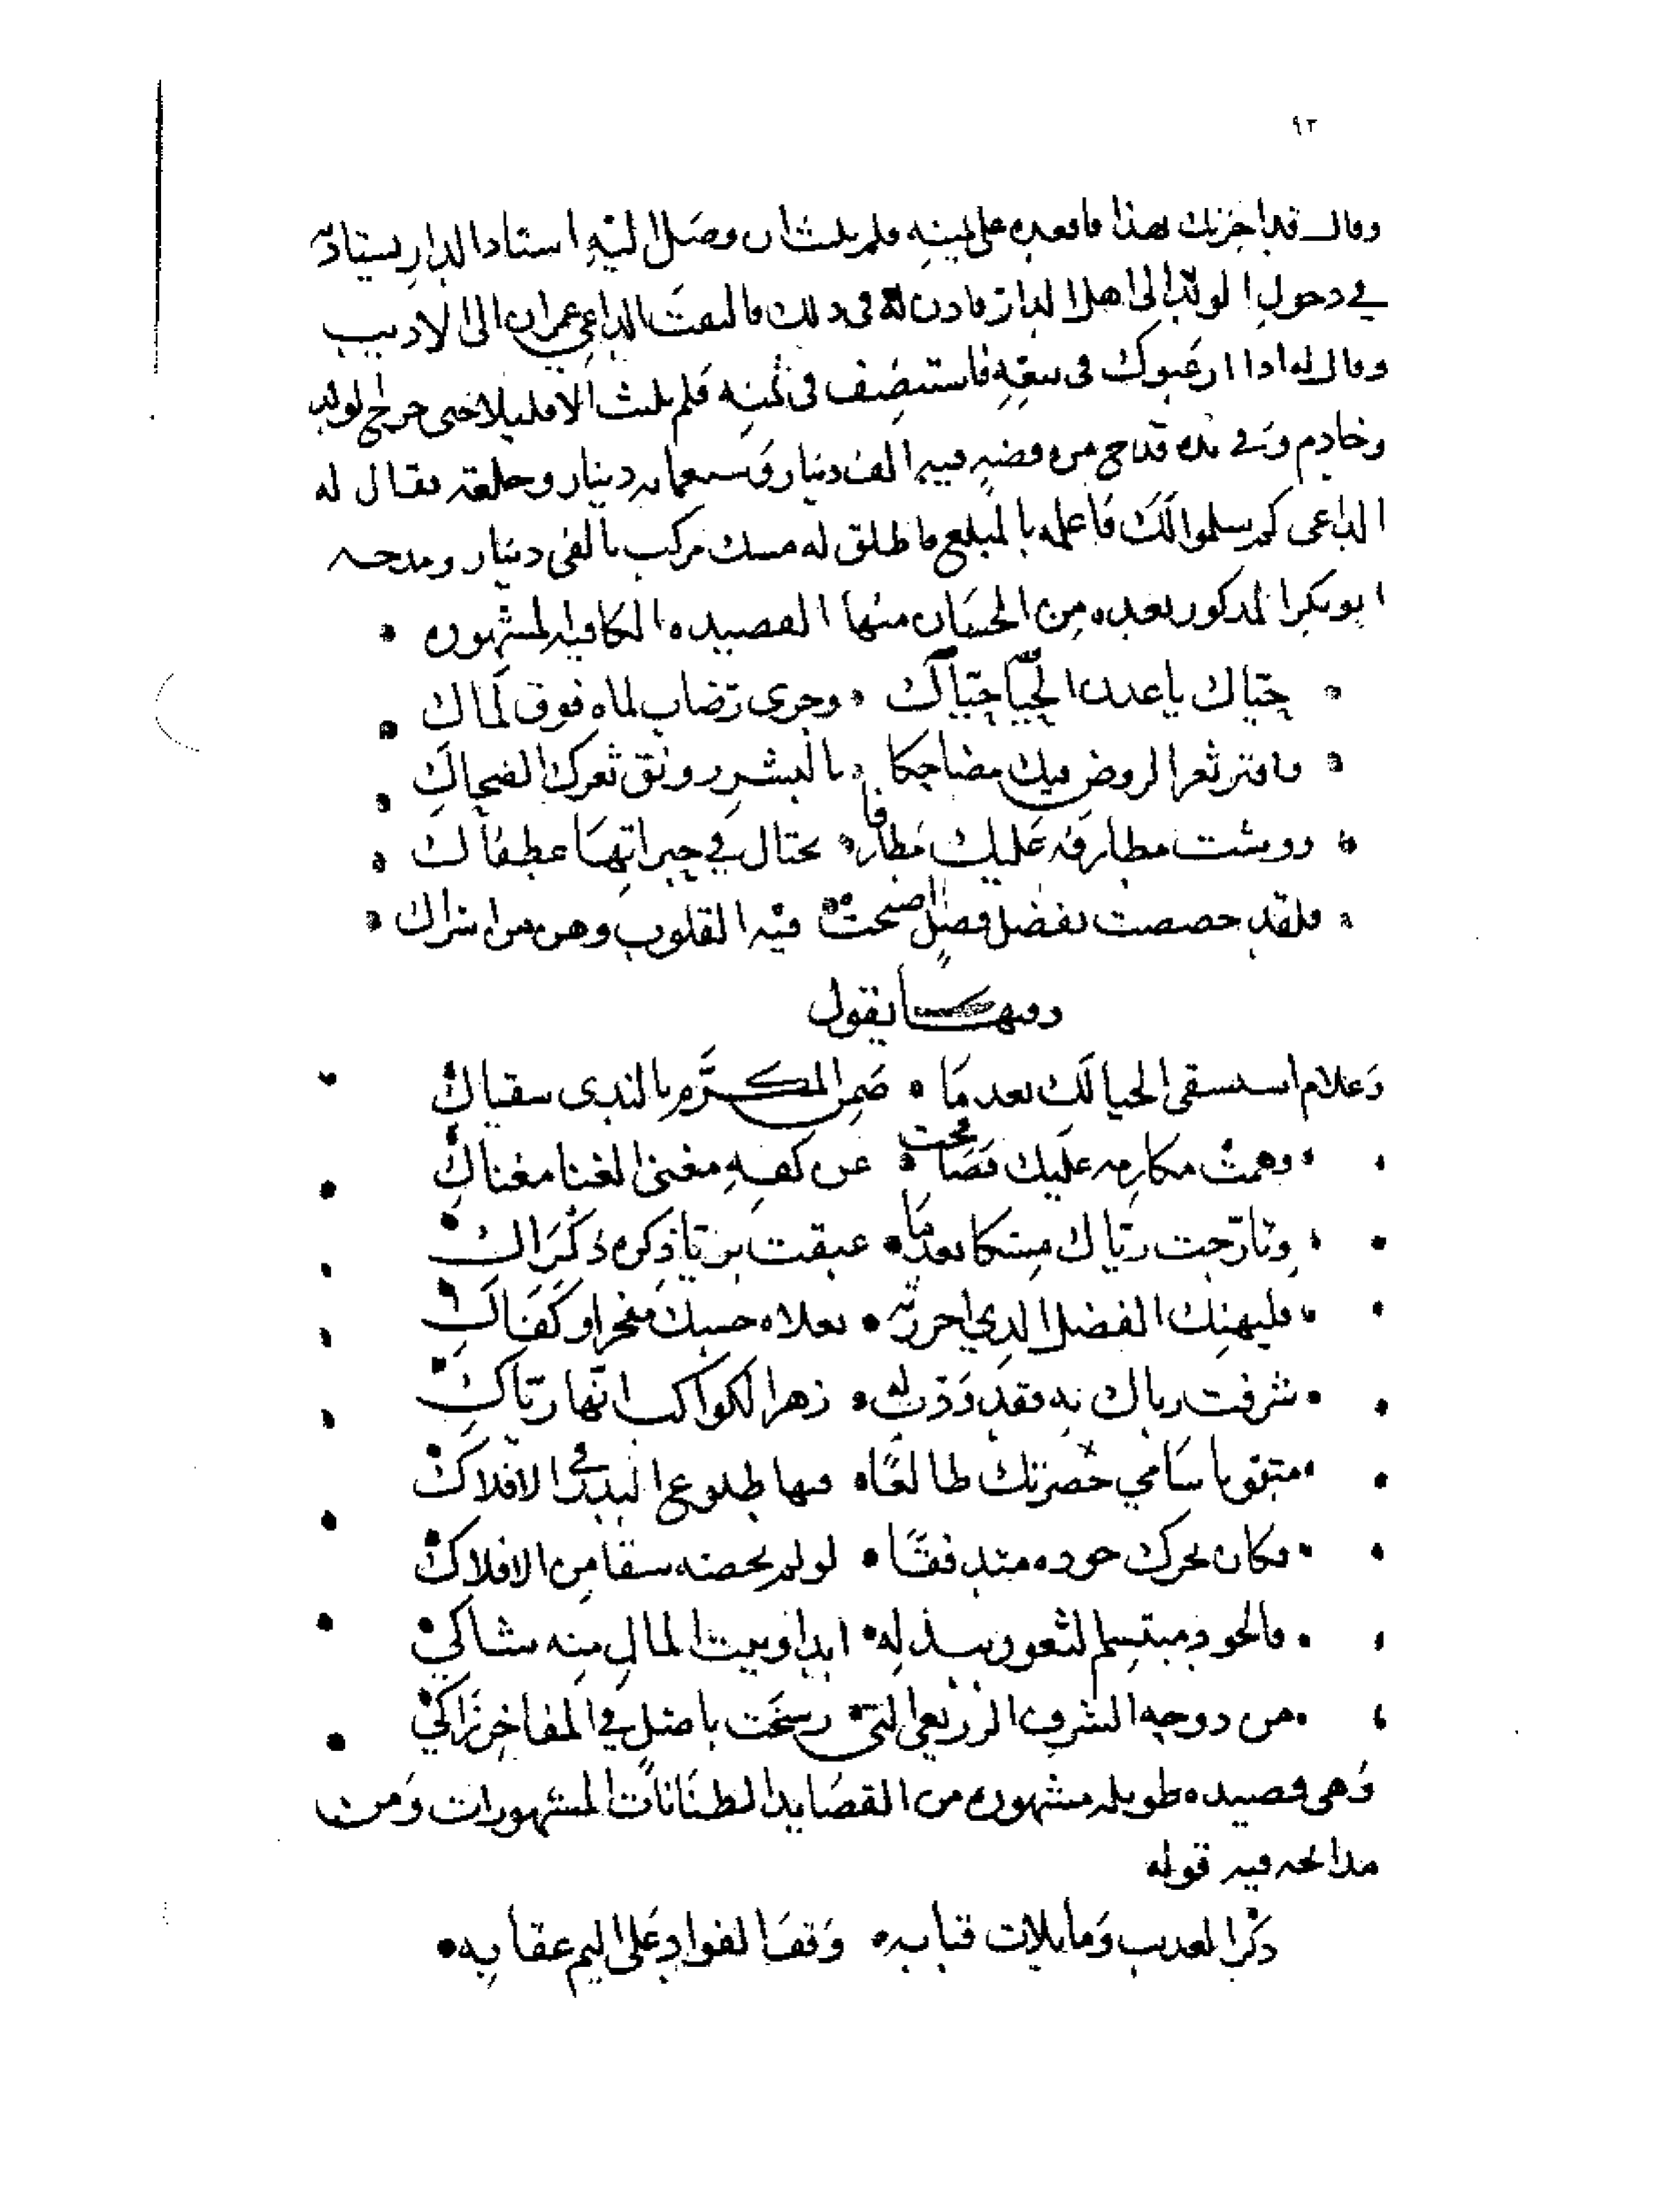 ٩٢
وقال قد اجزتك بهذا فاقعده على يمينه فلم يلبث ان وصل اليه استاد الدار يستاذنه
في دخول الولد الى اهل الدار فاذن له في ذلك فالتفت الداعي عمران الى الاديب
وقال له اذا ارغبوك في بيعه فاستنصف في ثمنه فلم يلبث الا قليلا حتى خرج الولد
وخادم وفي يده قداح من فضه فيه الف دينار وسبعمايه دينار وخلعة فقال له
الداعي كم سلموا لك فاعلمه بالمبلغ فاطلق له مسك مركب بالفي دينار ومدحه
ابو بكر المذكور بعده من الحسان منها القصيده الكافيه المشهوره
حيّاك يا عدن الحيا حيّاك وجرى رضاب لماه فوق لماك
وافتر ثغر الروض فيك مضاحكا بالبشر رونق ثغرك الضحاك
ووشت مطارفه عليك مطارفا يختال في حبراتها عطفاك
فلقد خصصت بفضل فضل اصبحت فيه القلوب وهن من اسراك
ومنها يقول
وعلام استسقي الحيا لك بعدما ضمن المكرّم بالندى سقياك
وهمت مكارمه عليك فصافحت عن كفه مغنى الغنا مغناك
وتارّجت ريّاك مسكا بعدما عبقت بريّا ذكره ذكراك
فليهنك الفضل الذي احرزته بعلاه حسبك مفخرا وكفاك
شرفت رباك به فقد ودّت له زهر الكواكب انها ربّاك
متبوّيا سامي حصونك طالعا فيها طلوع البدر في الافلاك
فكان بحرك جوده متدفقا لو لم يخضه سفاين الافلاك
فالجود مبتسم الثغور ببذله ابدا وبيت المال منه شاكي
من دوحه الشرف الزريعي التي رسخت باصل في المفاخر زاكي
وهي قصيده طويله مشهوره من القصايد الطنانات المشهورات ومن
مدائحه فيه قوله
ذكر العذيب ومايلات قبابه وقفا الفواد على اليم عقابه